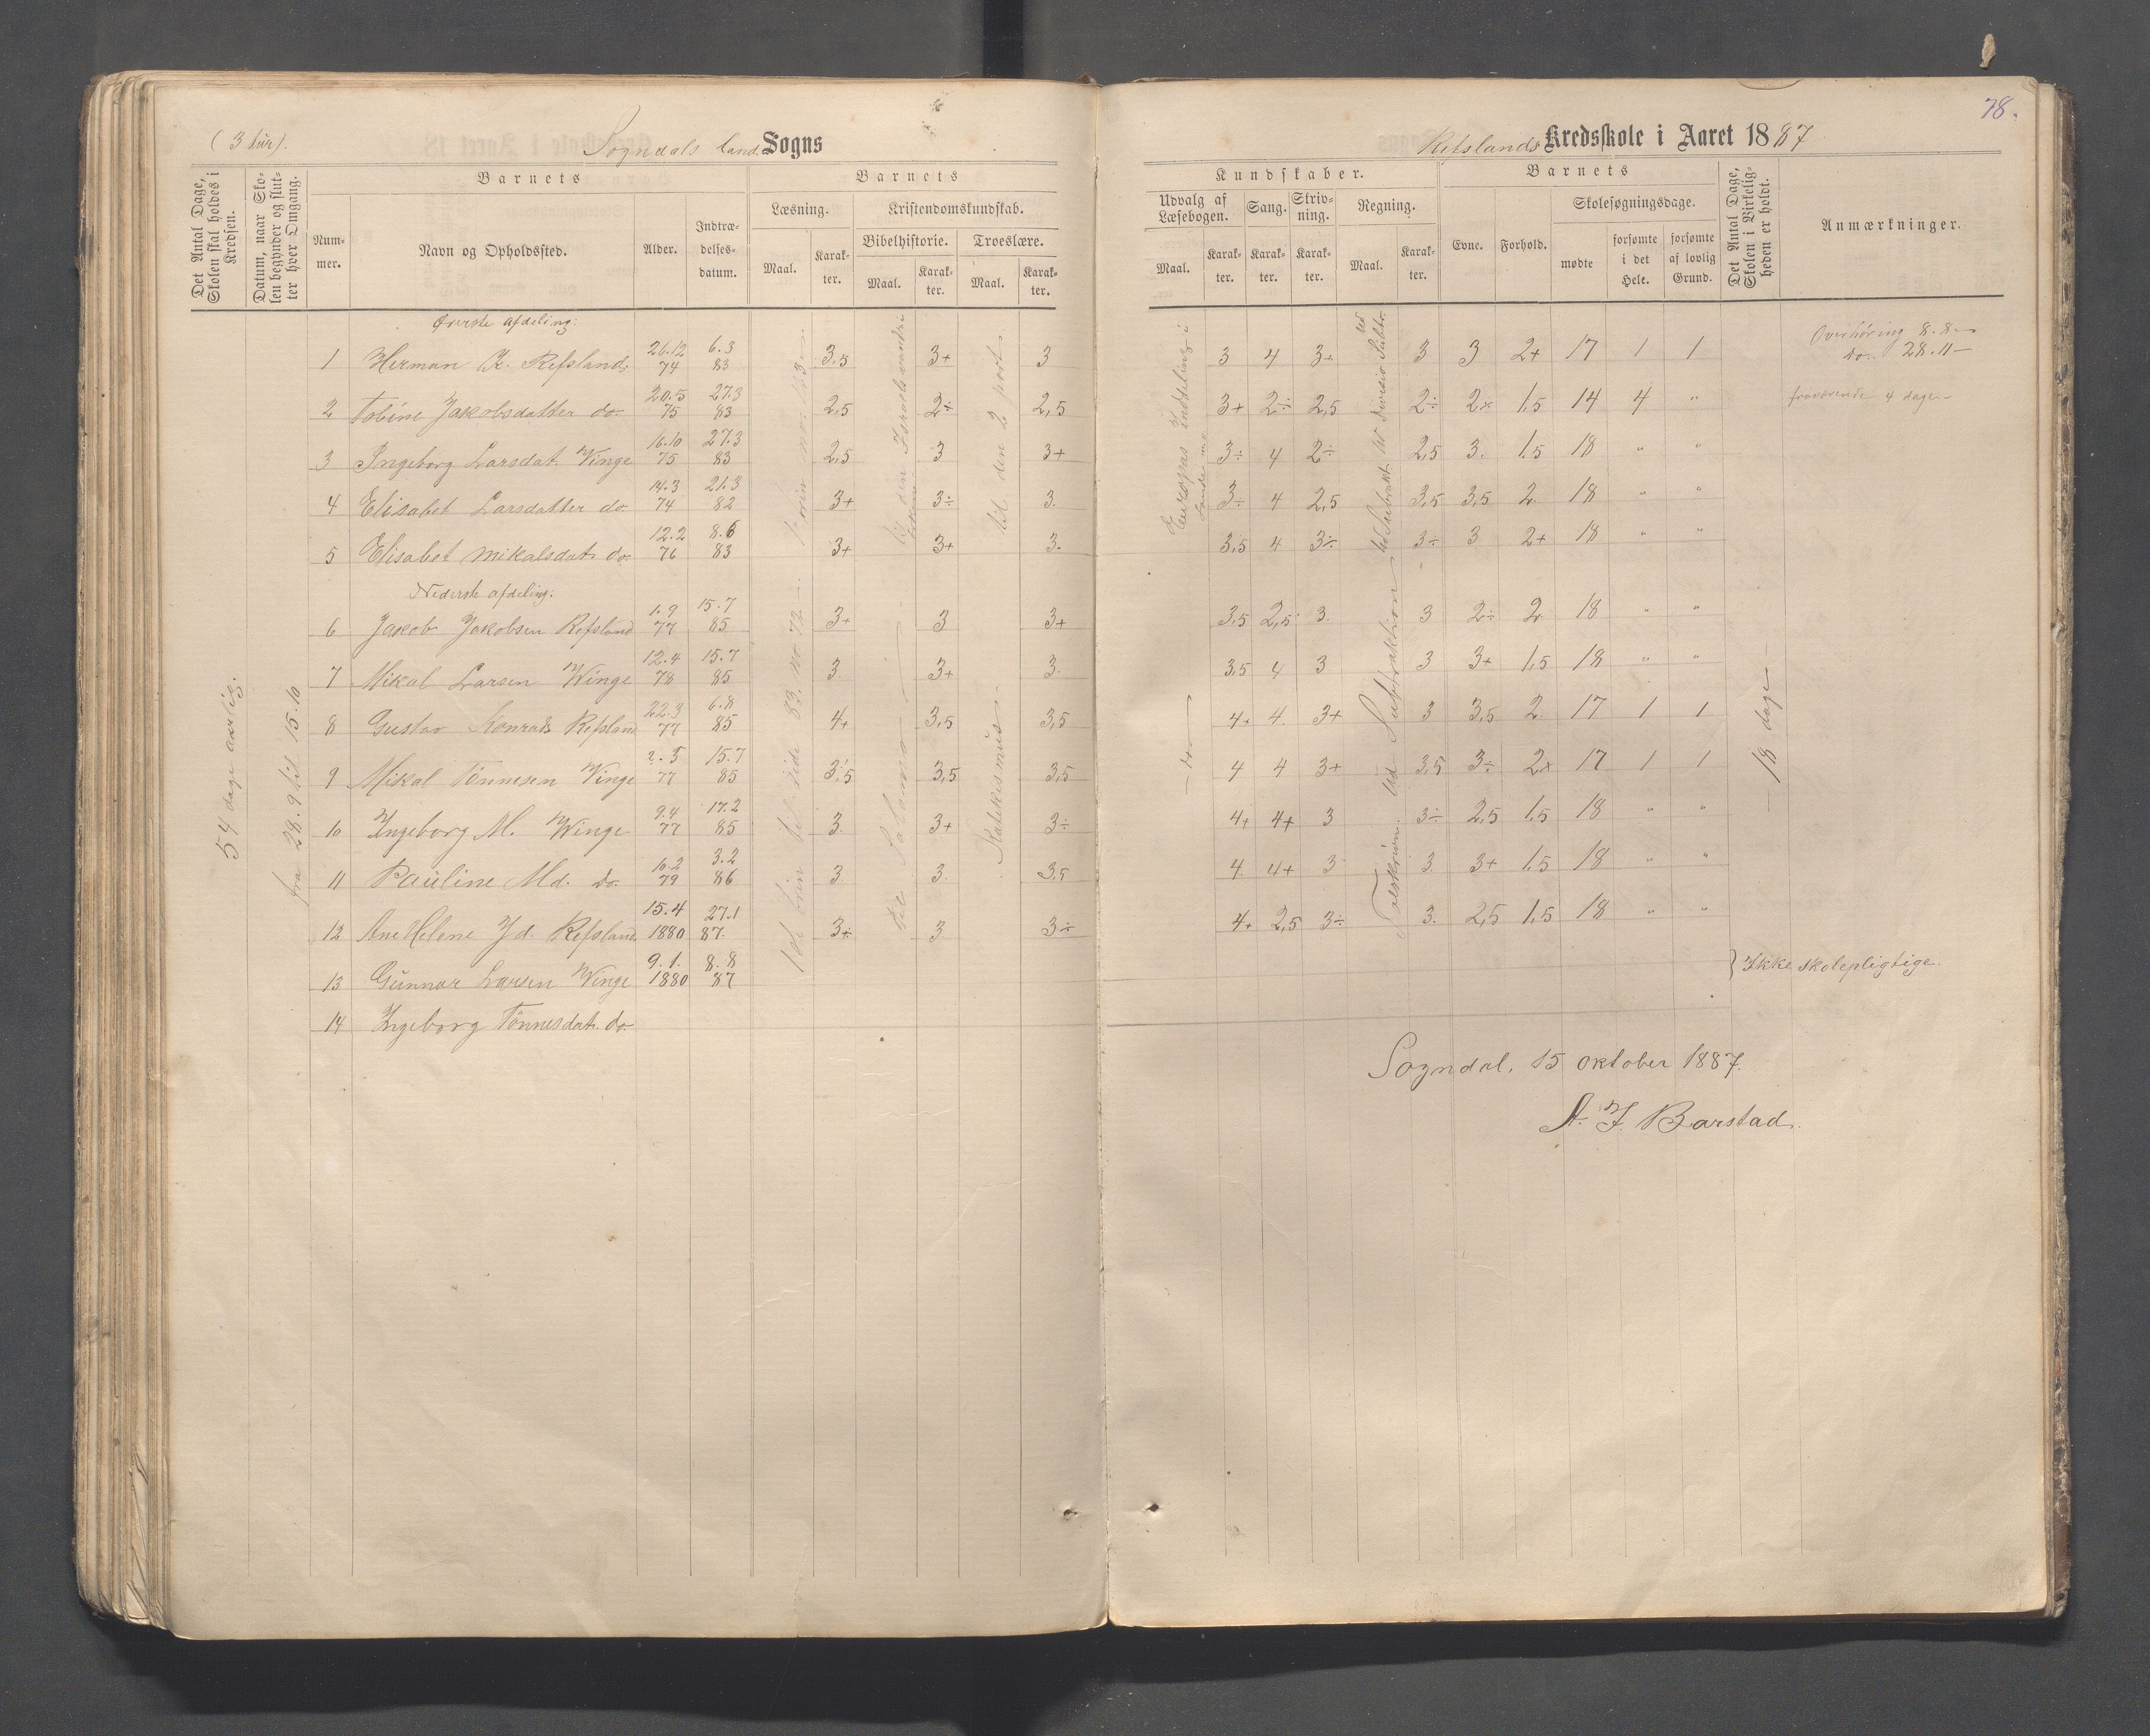 78.
(3 tur).
Sogndals land Sogns
Refslands Kredsskole i Aaret 1887
Det Antal Dage, Skolen skal holdes i Kredsen.
Datum, naar Skolen begynder og slutter hver Omgang.
Barnets
Nummer.
Navn og Opholdssted.
Alder.
Indtrædelsesdatum.
Barnets
Læsning.
Maal.
Karakter.
Kristendomskundskab.
Bibelhistorie.
Maal.
Karakter.
Troeslære.
Maal.
Karakter.
Kundskaber.
Udvalg af Læsebogen.
Maal.
Karakter.
Sang.
Karakter.
Skrivning.
Karakter.
Regning.
Maal.
Karakter.
Barnets
Evne.
Forhold.
Skolesøgningsdage.
mødte
forsømte i det Hele.
forsømte af lovlig Grund.
Det Antal Dage, Skolen i Virkeligheden er holdt.
Anmærkninger.
54 dage aarlig.
fra 28.9 til 15.10
Øverste afdeling:
1 Herman K. Refsland, 26.12 74 6.3 83 3,5 3+ 3 3 4 3+ 3 3 2+ 17 1 1 Overhøring 8.8
do. 28.11
2 Tobine Jakobsdatter do. 20.5 75 27.3 83 2,5 2÷ 2,5 3+ 2÷ 2,5 2÷ 2+ 1,5 14 4 " fraværende 4 dage
3 Ingeborg Larsdat. Vinge 16.10 75 27.3 83 2,5 3 3+ 3÷ 4 2÷ 2,5 3. 1,5 18 " "
4 Elisabet Larsdatter do. 14.3 74 21.3 82 3+ 3÷ 3. 3÷ 4 2,5 3,5 3,5 2 18 " "
5 Elisabet Mikalsdat. do. 12.2 76 8.6 83 3+ 3+ 3. 3,5 4 3÷ 3÷ 3 2+ 18 " "
Nederste afdeling:
6 Jakob Jakobsen Refsland 1.9 77 15.7 85 3+ 3 3+ 3,5 2,5 3. 3 2÷ 2 18 " "
7 Mikal Larsen Vinge 12.4 78 15.7 85 3. 3+ 3. 3,5 4 3 3 3+ 1,5 18 " "
8 Gustav Konrads Refsland 22.3 77 6.8 85 4+ 3,5 3,5 4+ 4. 3+ 3 3,5 2. 17 1 1
9 Mikal Tönnesen Vinge 2.5 77 15.7 85 3,5 3,5 3,5 4 4 3+ 3,5 3÷ 2+ 17 1 1
10 Ingeborg M. Vinge 9.4 77 17.2 85 3. 3+ 3÷ 4+ 4+ 3 3÷ 2,5 1,5 18 " "
11 Pauline Md. do. 10.2 79 3.2 86 3. 3. 3,5 4. 4+ 3 3. 3+ 1,5 18 " "
12 Ane Helene Jd. Refsland 15.4 1880 27.1 87. 3÷ 3 3÷ 4+ 2,5 3÷ 3. 2,5 1,5 18 " "
13 Gunnar Larsen Vinge 9.1. 1880 8.8 87
14 Ingeborg Tönnesdat. do.
} Ikke skolepligtige.
til den 2 part
Katekismus
Europas Inddeling i
do
Subtraktion
18 dage
Sogndal, 15 oktober 1887.
A. J. Barstad.